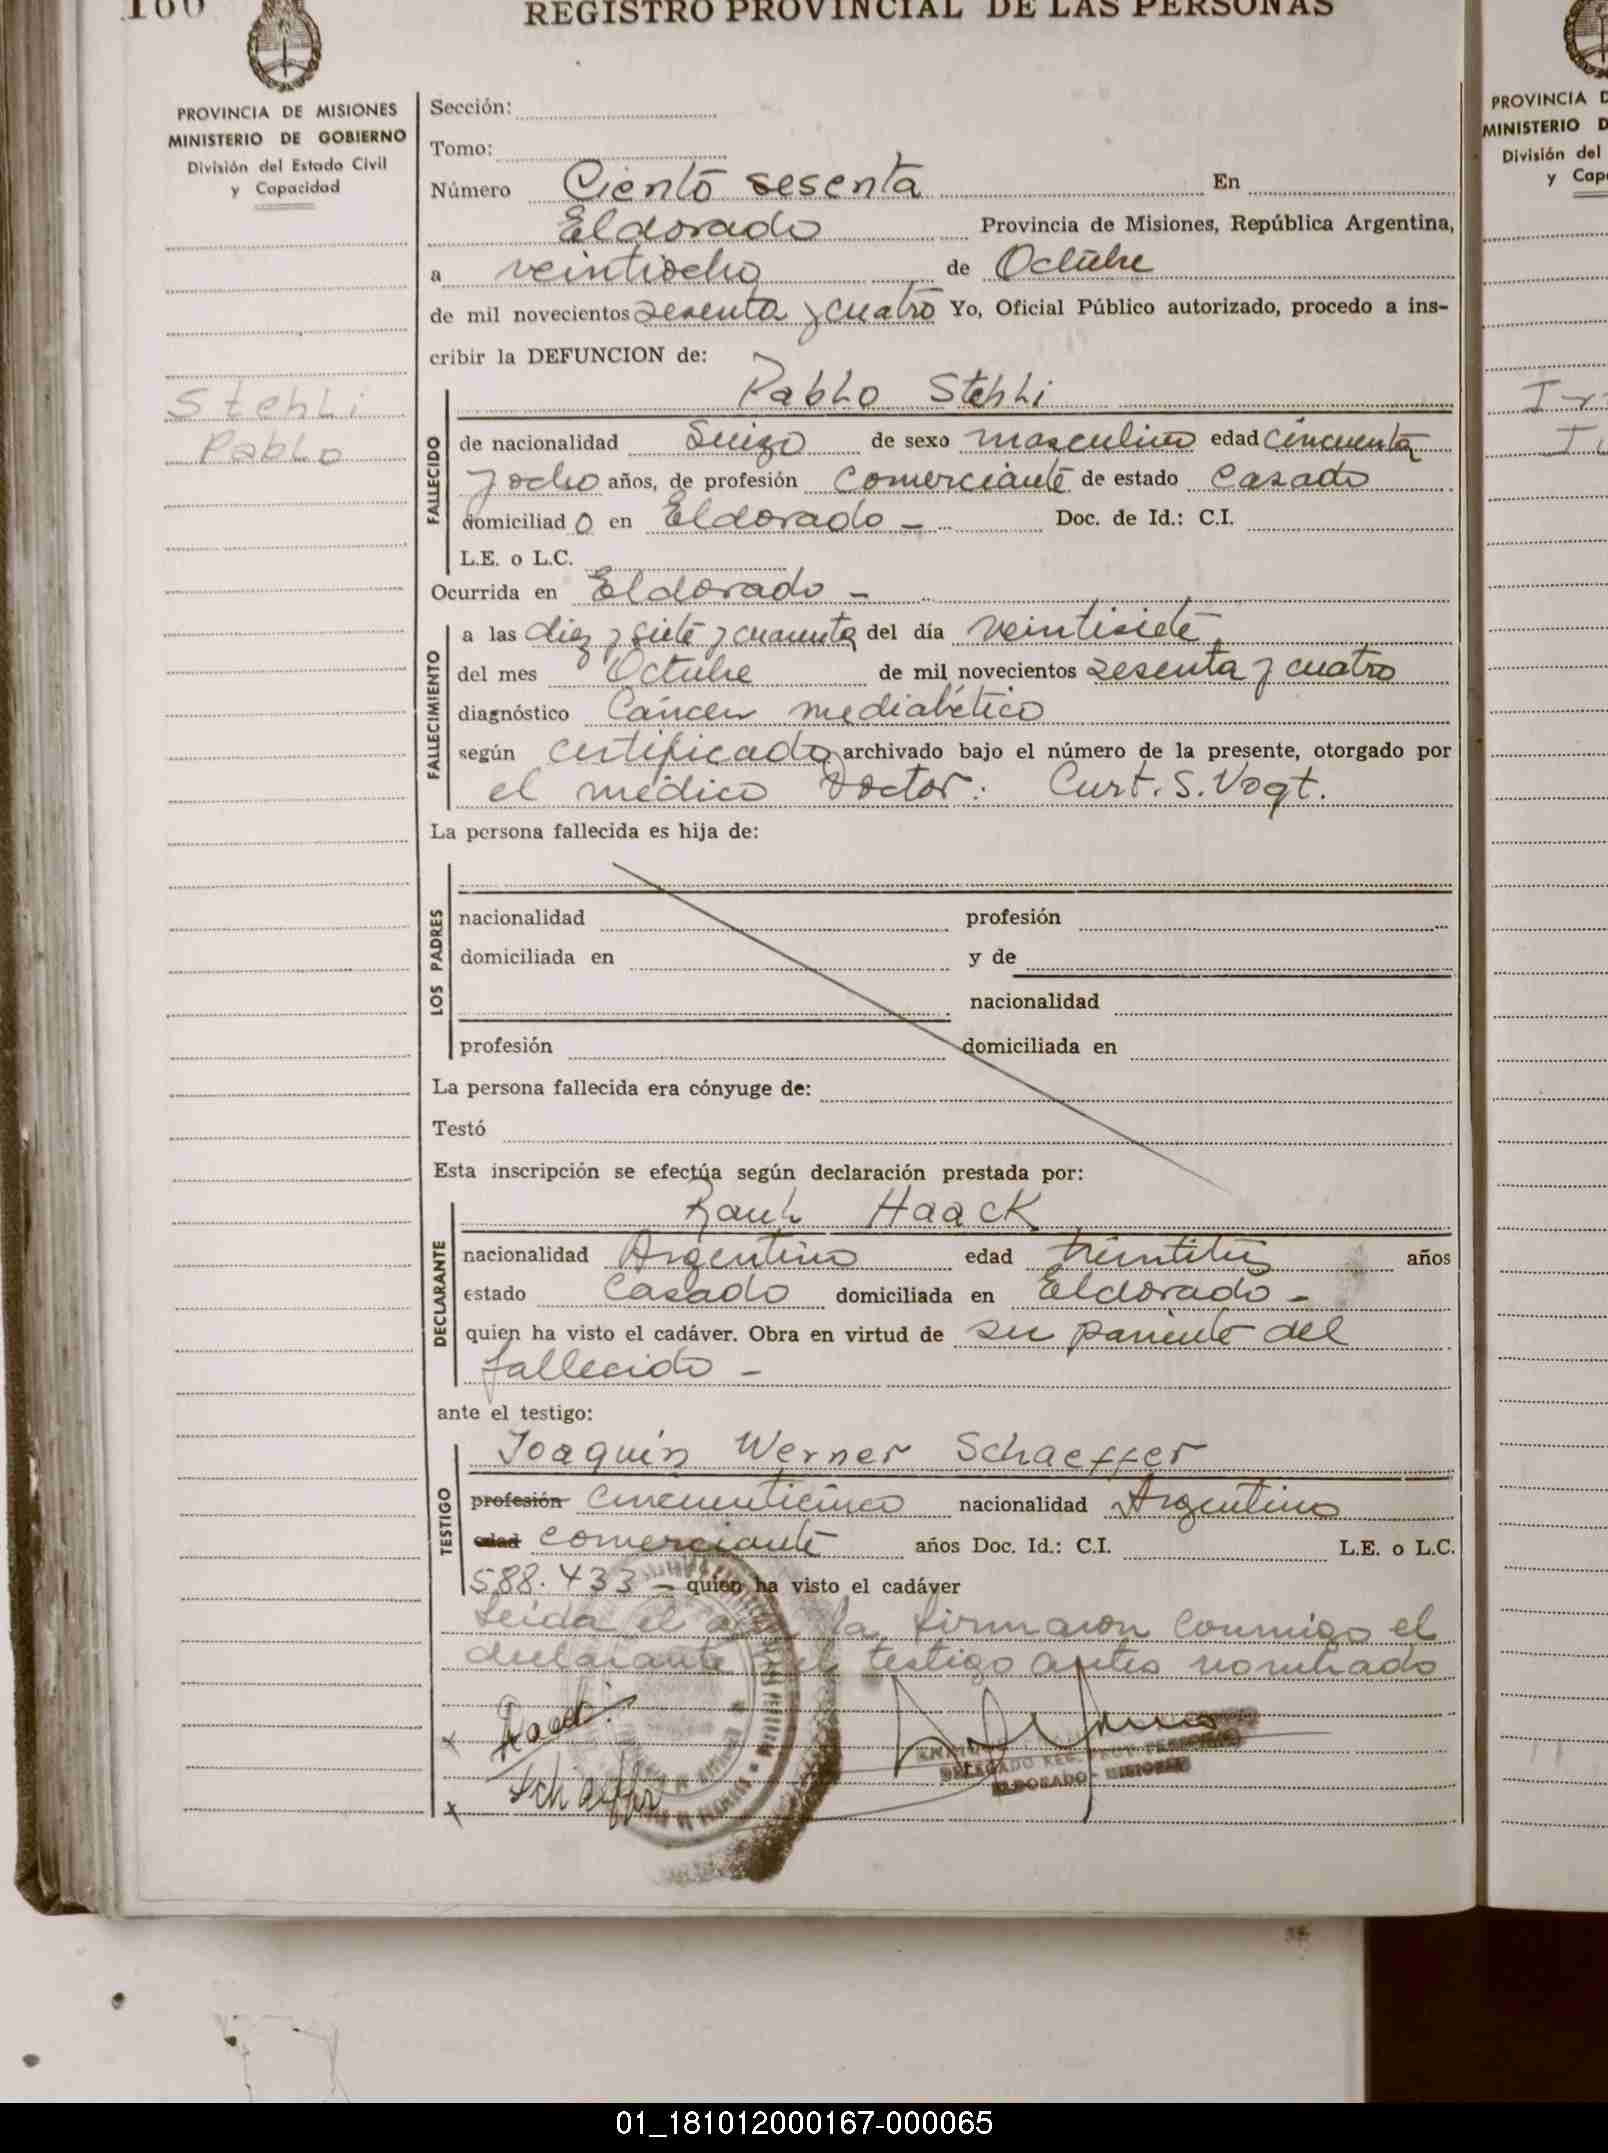 160
REGISTRO PROVINCIAL DE LAS PERSONAS
PROVINCIA DE MISIONES
MINISTERIO DE GOBIERNO
División del Estado Civil
y Capacidad
Stehli
Pablo
Sección:
Tomo:
Número Ciento sesenta En
Eldorado Provincia de Misiones, República Argentina,
a veintiocho de Octubre
de mil novecientos sesenta y cuatro Yo, Oficial Público autorizado, procedo a ins-
cribir la DEFUNCION de:
Pablo Stehli
FALLECIDO
de nacionalidad Suizo de sexo masculino edad cincuenta
y ocho años, de profesión Comerciante de estado Casado
domiciliado en Eldorado - Doc. de Id.: C.I.
L.E. o L.C.
Ocurrida en Eldorado -
FALLECIMIENTO
a las diez y siete y cuarenta del día veintisiete
del mes Octubre de mil novecientos sesenta y cuatro
diagnóstico Cáncer mediabético
según certificado archivado bajo el número de la presente, otorgado por
el médico Doctor: Curt. S. Vogt.
La persona fallecida es hija de:
LOS PADRES
nacionalidad profesión
domiciliada en y de
nacionalidad
profesión domiciliada en
La persona fallecida era cónyuge de:
Testó
Esta inscripción se efectúa según declaración prestada por:
Raul Haack
DECLARANTE
nacionalidad Argentino edad años
estado Casado domiciliada en Eldorado -
quien ha visto el cadáver. Obra en virtud de su pariente del
fallecido -
ante el testigo:
Joaquin Werner Schaeffer
TESTIGO
profesión cincuenticinco nacionalidad Argentino
edad comerciante años Doc. Id.: C.I. L.E. o L.C.
588.433 - quien ha visto el cadáver
Leida el acta la firmaron conmigo el
declarante y el testigo antes nombrado
Haack
Schaeffer
DELEGADO
ELDORADO - MISIONES
PROVINCIA D
MINISTERIO D
División del
y Cap
01_181012000167-000065